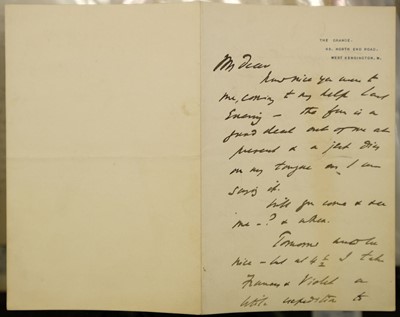 THE GRANGE,
49, NORTH END ROAD,
WEST KENSINGTON, W.
My Dear
how nice you were to
me, coming to my help last
Evening — the fun is a
good deal out of me at
present & a jest dies
on my tongue as I am
saying it.
Will you come & see
me —? & when.
Tomorrow would be
nice — but at 4½ I take
Frances & Violet on
little expedition to